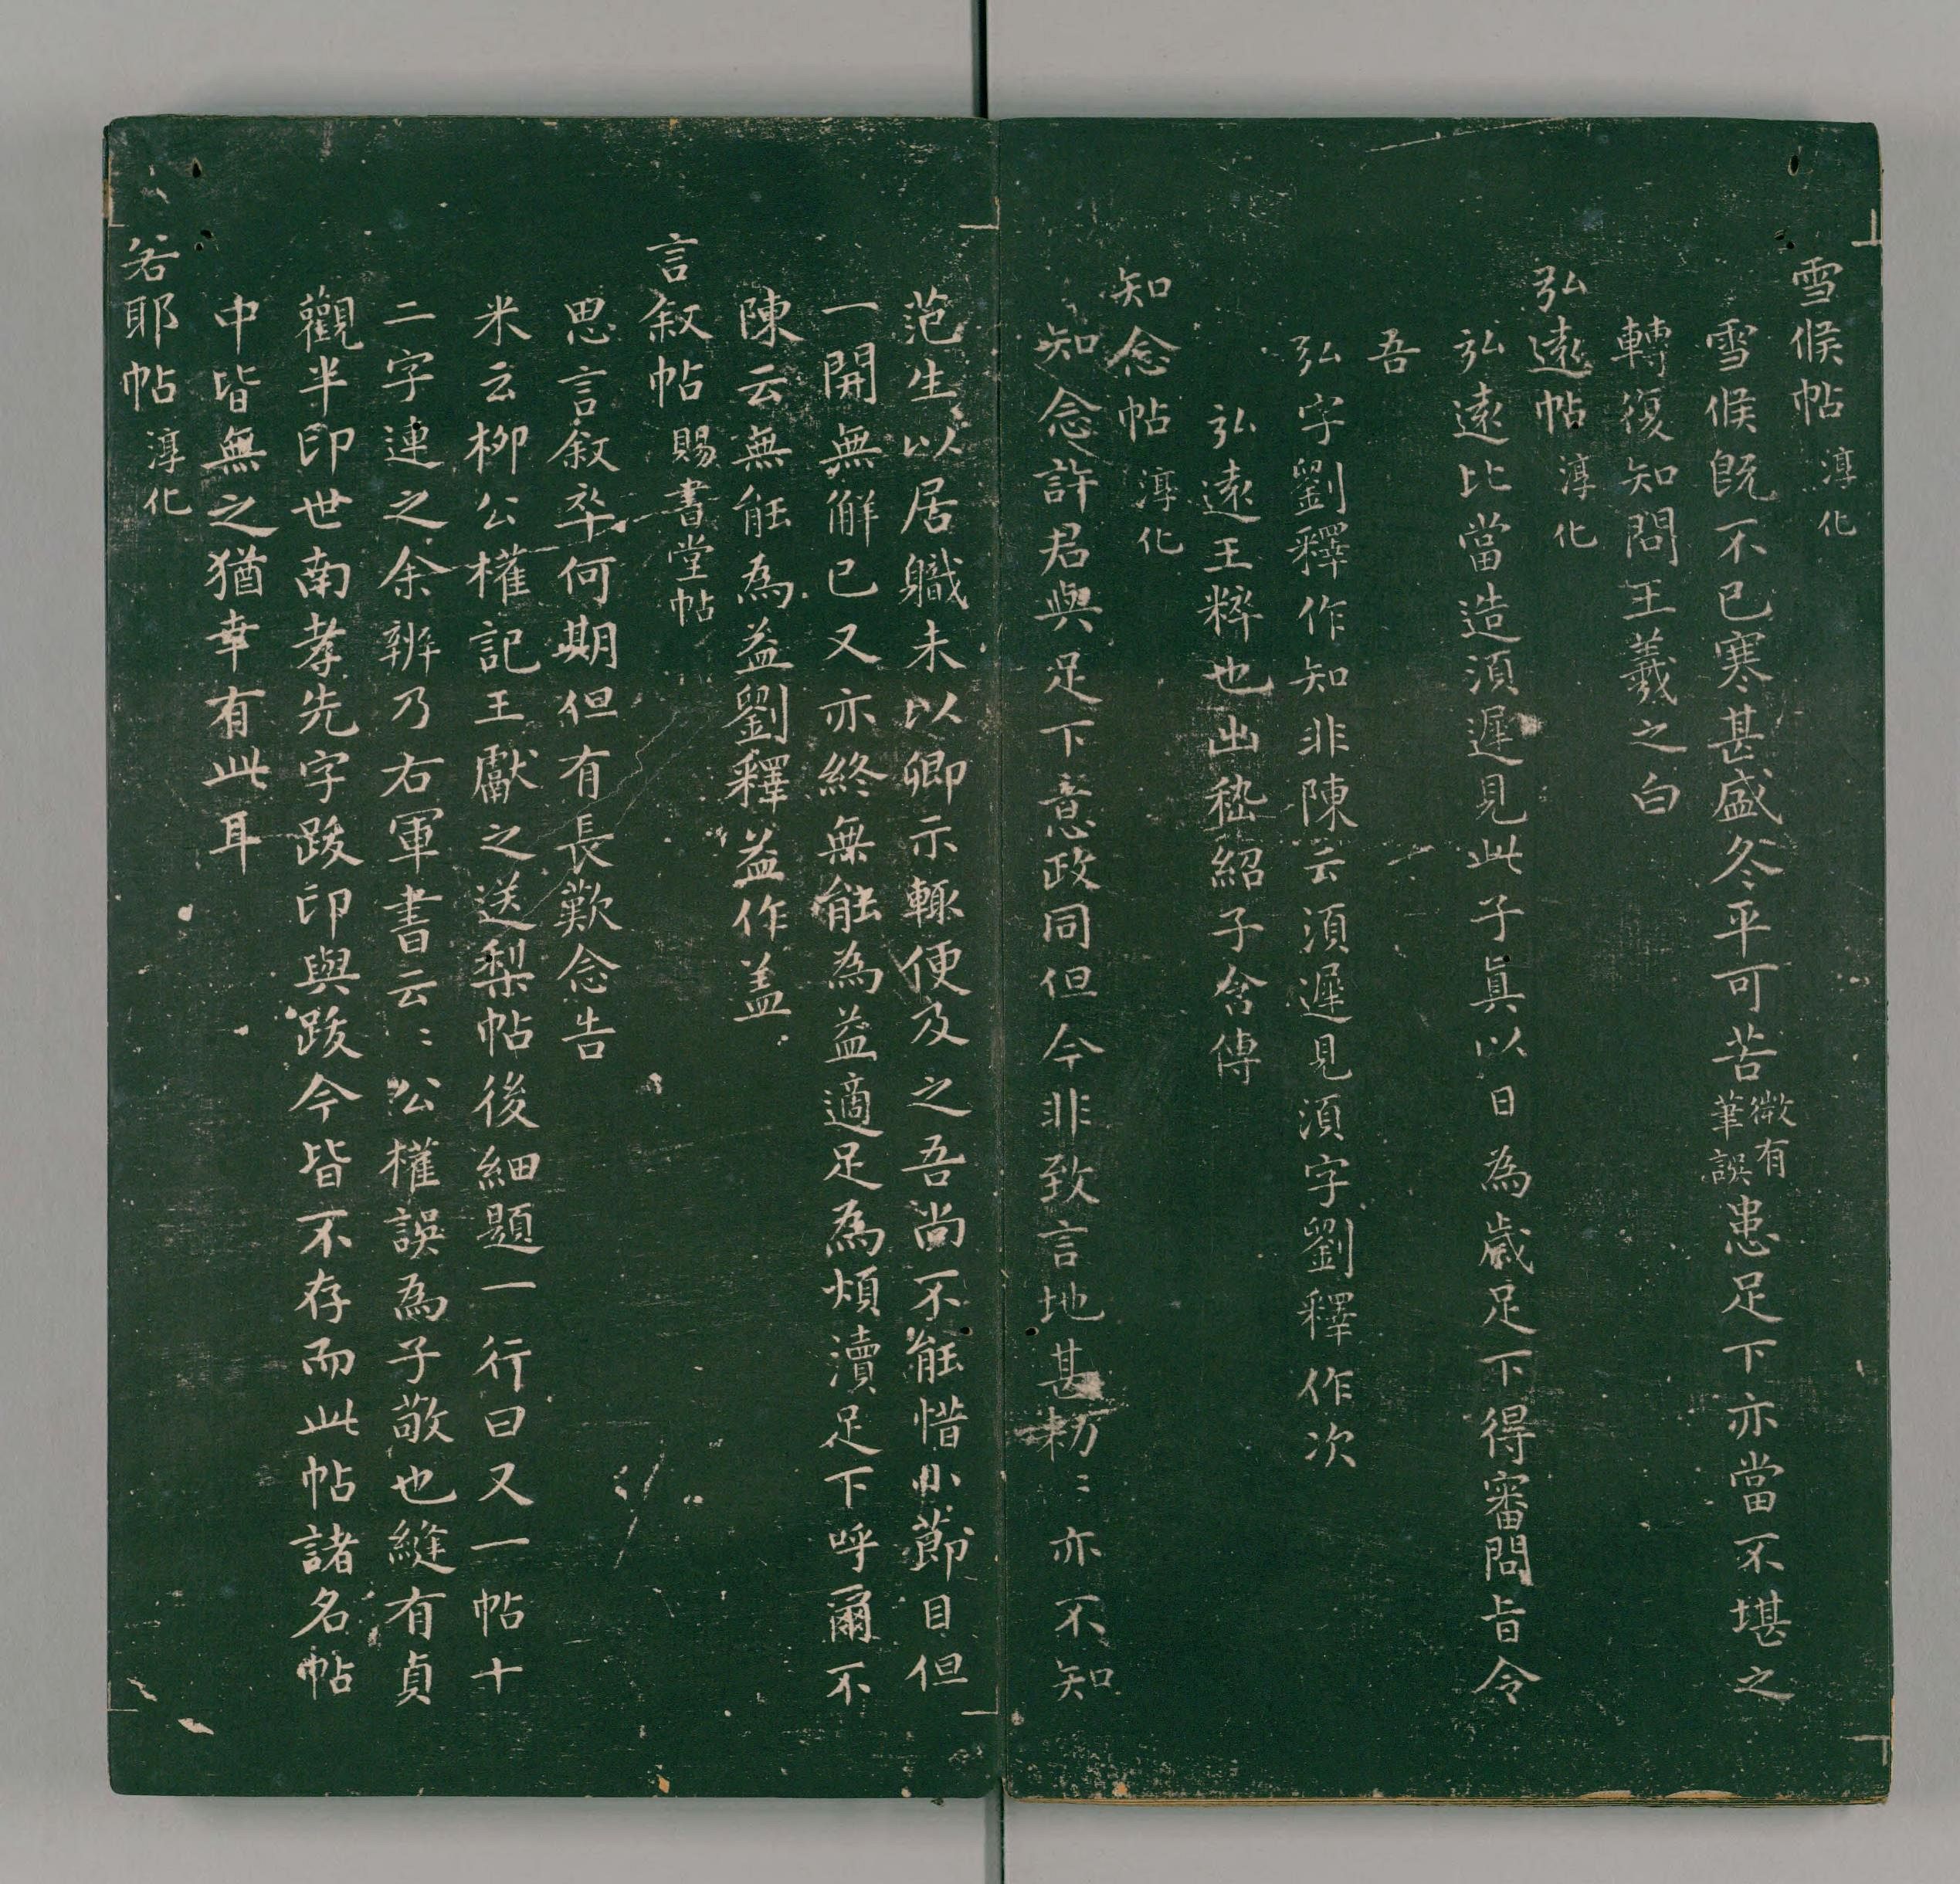 雪候帖 淳化
雪候既不已寒甚盛冬平可苦微有筆誤患足下亦當不堪之
轉復知問王羲之白
弘遠帖 淳化
弘遠比當造須遲見此子真以日為歲足下得審問旨令
吾
弘字劉釋作知非陳云須遲見須字劉釋作次
弘遠王粹也出嵇紹子含傳
知念帖 淳化
知念許君與足下意政同但今非致言地甚勑〻亦不知
范生以居職未以卿示輒便及之吾尚不能惜小節目但
一開無解已又亦終無能為益適足為煩瀆足下呼爾不
陳云無能為益劉釋益作盖
言敘帖 賜書堂帖
思言敘卒何期但有長歎念告
米云柳公權記王獻之送梨帖後細題一行曰又一帖十
二字連之余辨乃右軍書云〻公權誤為子敬也縫有貞
觀半印世南孝先字跋印與跋今皆不存而此帖諸名帖
中皆無之猶幸有此耳
若耶帖 淳化